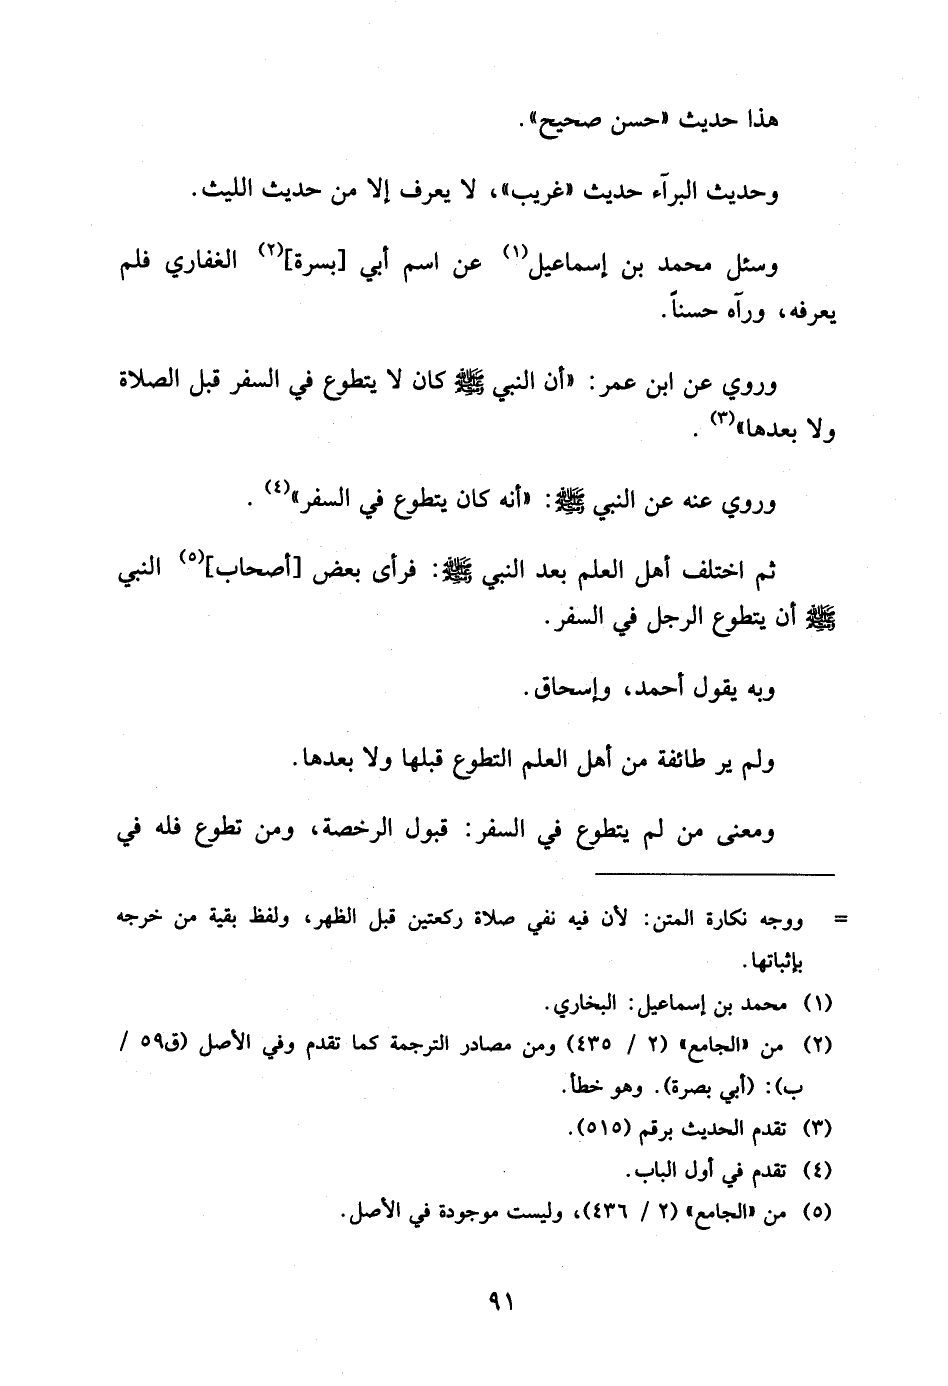 هذا حديث «حسن صحيح».
وحديث البرآء حديث «غريب»، لا يعرف إلا من حديث الليث.
وسئل محمد بن إسماعيل(١) عن اسم أبي [بسرة](٢) الغفاري فلم
يعرفه، ورآه حسناً.
وروي عن ابن عمر: «أن النبي ﷺ كان لا يتطوع في السفر قبل الصلاة
ولا بعدها»(٣).
وروي عنه عن النبي ﷺ: «أنه كان يتطوع في السفر»(٤).
ثم اختلف أهل العلم بعد النبي ﷺ: فرأى بعض [أصحاب](٥) النبي
ﷺ أن يتطوع الرجل في السفر.
وبه يقول أحمد، وإسحاق.
ولم ير طائفة من أهل العلم التطوع قبلها ولا بعدها.
ومعنى من لم يتطوع في السفر: قبول الرخصة، ومن تطوع فله في
= ووجه نكارة المتن: لأن فيه نفي صلاة ركعتين قبل الظهر، ولفظ بقية من خرجه
بإثباتها.
(١) محمد بن إسماعيل: البخاري.
(٢) من «الجامع» (٢ / ٤٣٥) ومن مصادر الترجمة كما تقدم وفي الأصل (ق٥٩ /
ب): (أبي بصرة). وهو خطأ.
(٣) تقدم الحديث برقم (٥١٥).
(٤) تقدم في أول الباب.
(٥) من «الجامع» (٢ / ٤٣٦)، وليست موجودة في الأصل.
٩١